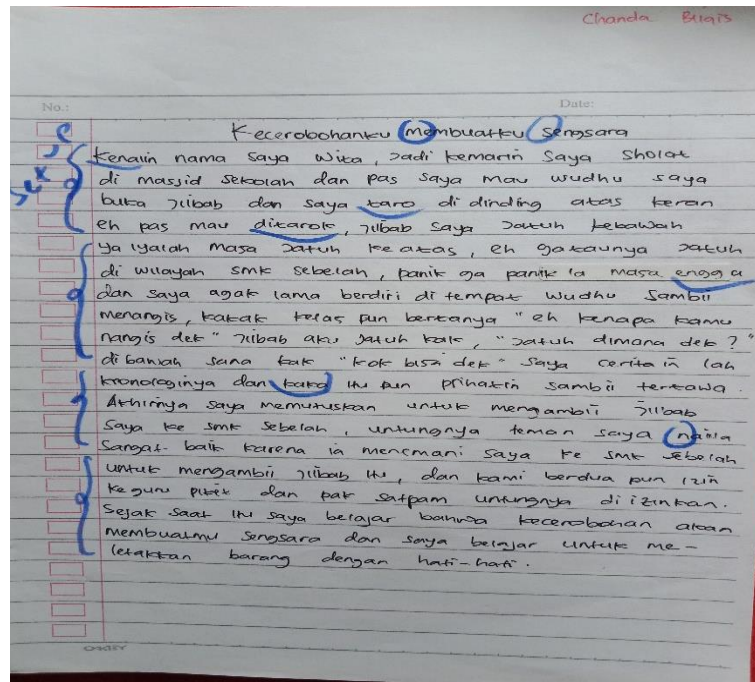 Chanda Bugis
No.:
Date:
Kecerobohanku membuatku sengsara
Kenalin nama saya Wita, jadi kemarin saya sholat
di massjid sekolah dan pas saya mau wudhu saya
buka jilbab dan saya taro di dinding atas keran
eh pas mau ditarok, jilbab saya jatuh kebawah
ya iyalah masa jatuh ke atas, eh gataunya jatuh
di wilayah smk sebelah, panik ga panik la masa engga
dan saya agak lama berdiri di tempat wudhu sambil
menangis, kakak kelas pun bertanya "eh kenapa kamu
nangis dek" jilbab aku jatuh kak, "jatuh dimana dek?"
di bawah sana kak "kok bisa dek" saya ceritain lah
kronologinya dan kaka itu pun prihatin sambil tertawa.
Akhirnya saya memutuskan untuk mengambil jilbab
saya ke smk sebelah, untungnya teman saya naila
sangat baik karena ia menemani saya ke smk sebelah
untuk mengambil jilbab itu, dan kami berdua pun izin
ke guru piket dan pak satpam untungnya di izinkan.
Sejak saat itu saya belajar bahwa kecerobohan akan
membuatmu sengsara dan saya belajar untuk me-
letakkan barang dengan hati-hati.